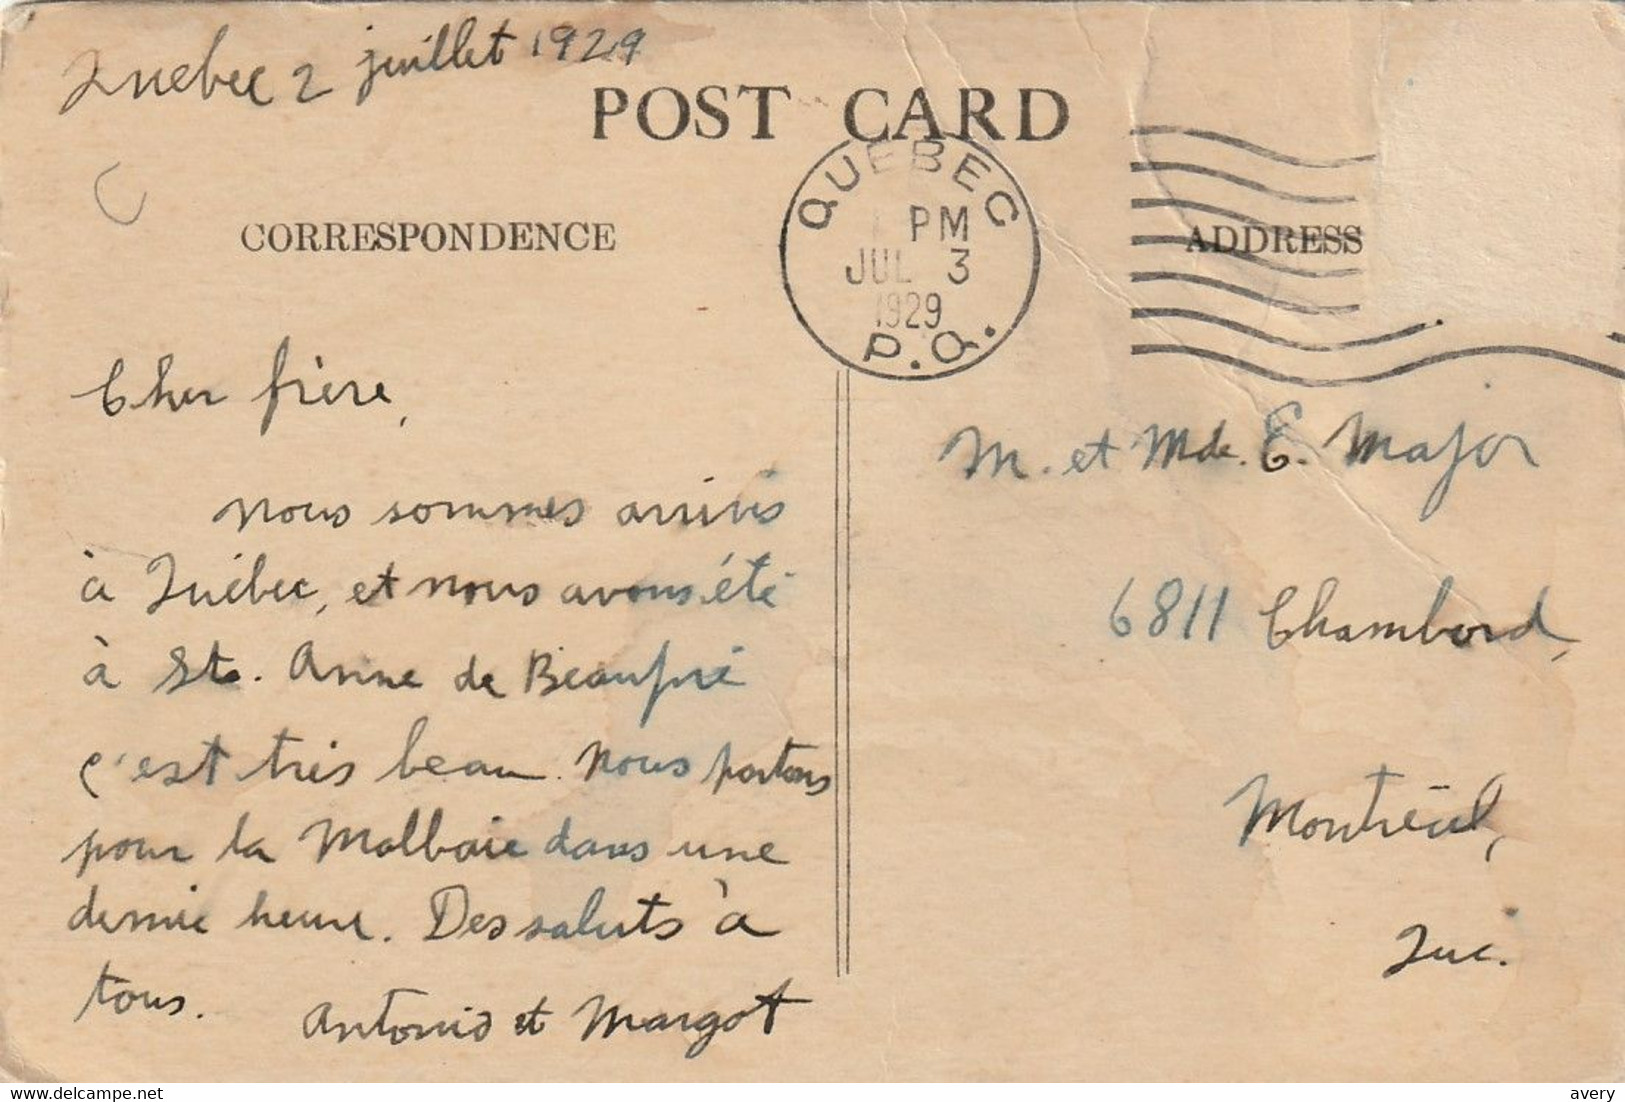 Quebec 2 juillet 1929
POST CARD
QUEBEC
PM
JUL 3
1929
P.Q.
CORRESPONDENCE
ADDRESS
Cher frère,
nous sommes arrivés
à Québec, et nous avons été
à Ste. Anne de Beaupré
c'est très beau. Nous partons
pour la Malbaie dans une
demie heure. Des saluts à
tous.
Antonio et Margot
M. et Mde. E. Major
6811 Chambord,
Montréal,
Que.
delcampe.net
avery